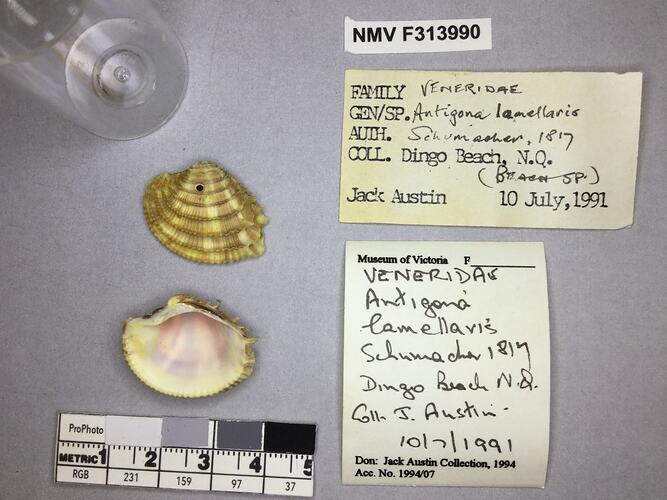 NMV F313990
FAMILY VENERIDAE
GEN/SP. Antigona lamellaris
AUTH. Schumacher, 1817
COLL. Dingo Beach, N.Q.
(BEACH SP.)
Jack Austin 10 July, 1991
Museum of Victoria F
VENERIDAE
Antigona
lamellaris
Schumacher 1817
Dingo Beach N.Q.
Coll. J. Austin
10/7/1991
Don: Jack Austin Collection, 1994
Acc. No. 1994/07
ProPhoto
METRIC 1 2 3 4 5
RGB 231 159 97 37